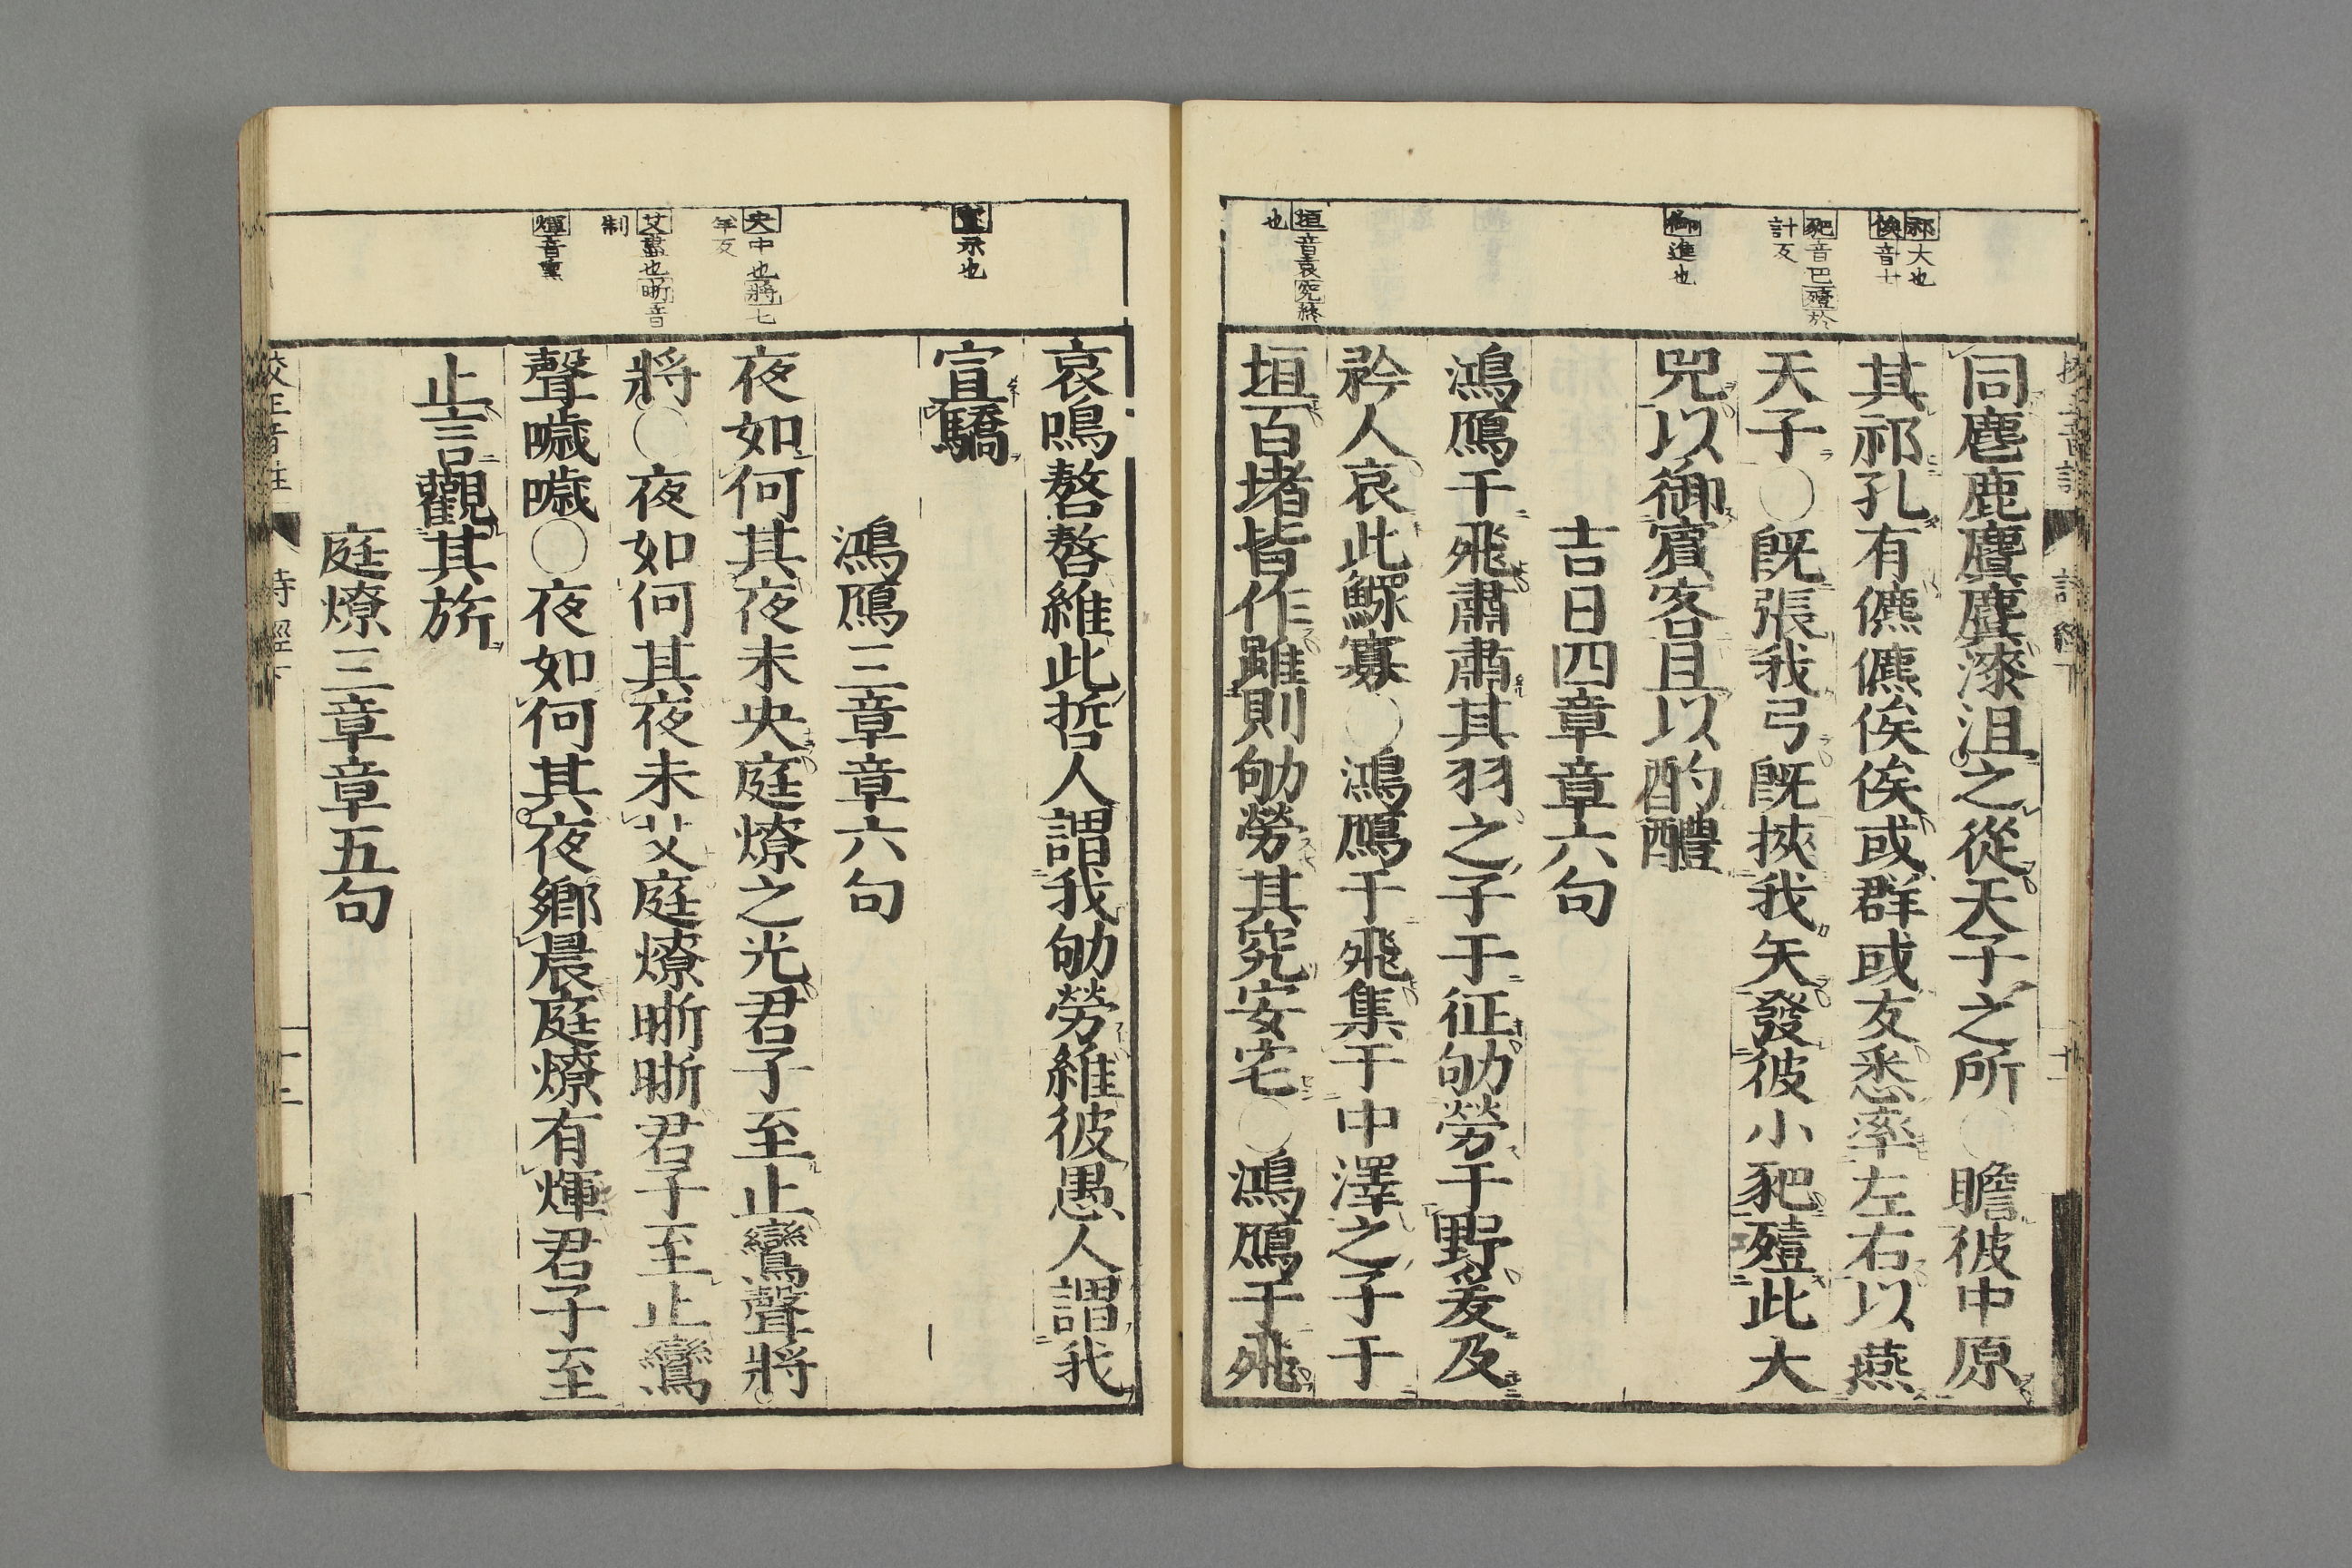 祁大也
俟音士
豝音巴殪於
計反
御進也
垣音袁究終
也
同麀鹿麌麌漆沮之從天子之所○瞻彼中原
其祁孔有儦儦俟俟或群或友悉率左右以燕
天子○旣張我弓旣挾我矢發彼小豝殪此大
兕以御賓客且以酌醴
吉日四章章六句
鴻鴈于飛肅肅其羽之子于征劬勞于野爰及
矜人哀此鰥寡○鴻鴈于飛集于中澤之子于
垣百堵皆作雖則劬勞其究安宅○鴻鴈于飛
宣示也
央中也將七
羊反
艾盡也晣音
制
煇音熏
哀鳴嗸嗸維此哲人謂我劬勞維彼愚人謂我
宣驕
鴻鴈三章章六句
夜如何其夜未央庭燎之光君子至止鸞聲將
將○夜如何其夜未艾庭燎晣晣君子至止鸞
聲噦噦○夜如何其夜鄉晨庭燎有煇君子至
止言觀其旂
庭燎三章章五句
校正音註 詩經下